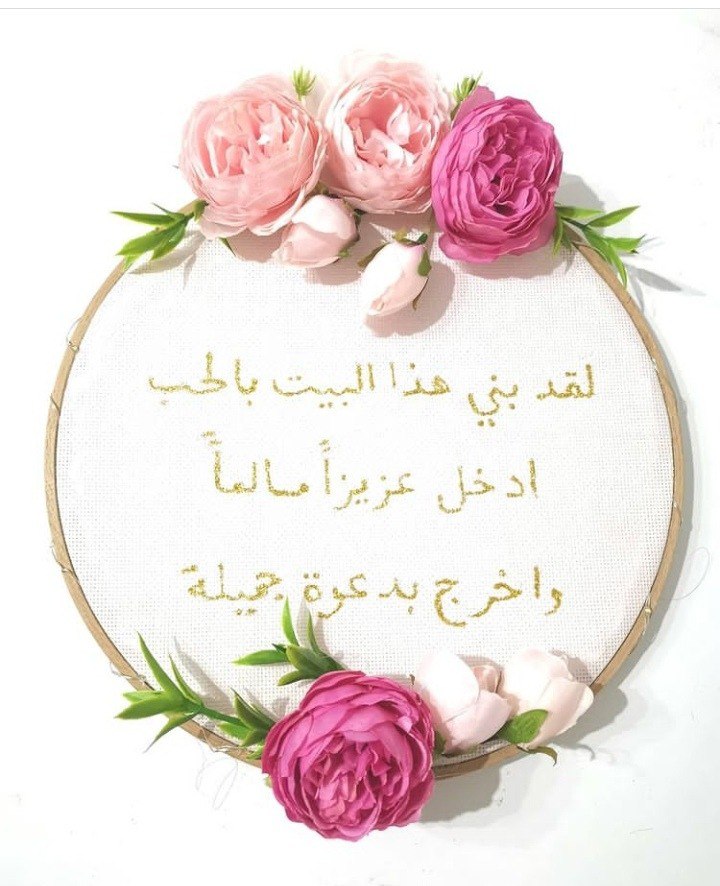 لقد بني هذا البيت بالحب
ادخل عزيزاً سالماً
واخرج بدعوة جميلة